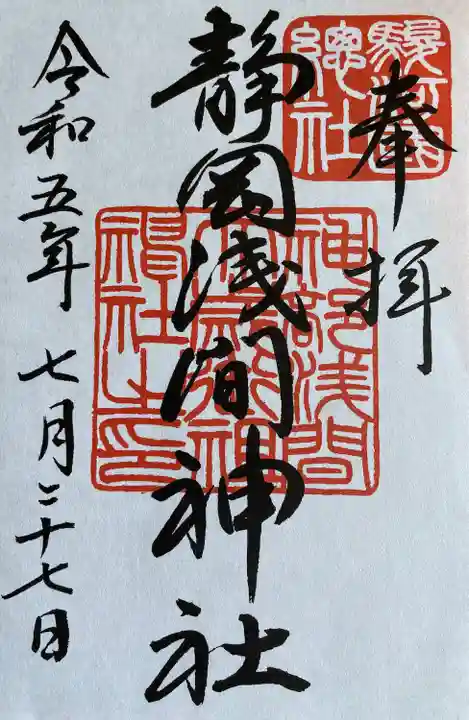 奉拝
駿河國
總社
静岡浅間神社
神部浅間
禝社之印
令和五年七月二十七日